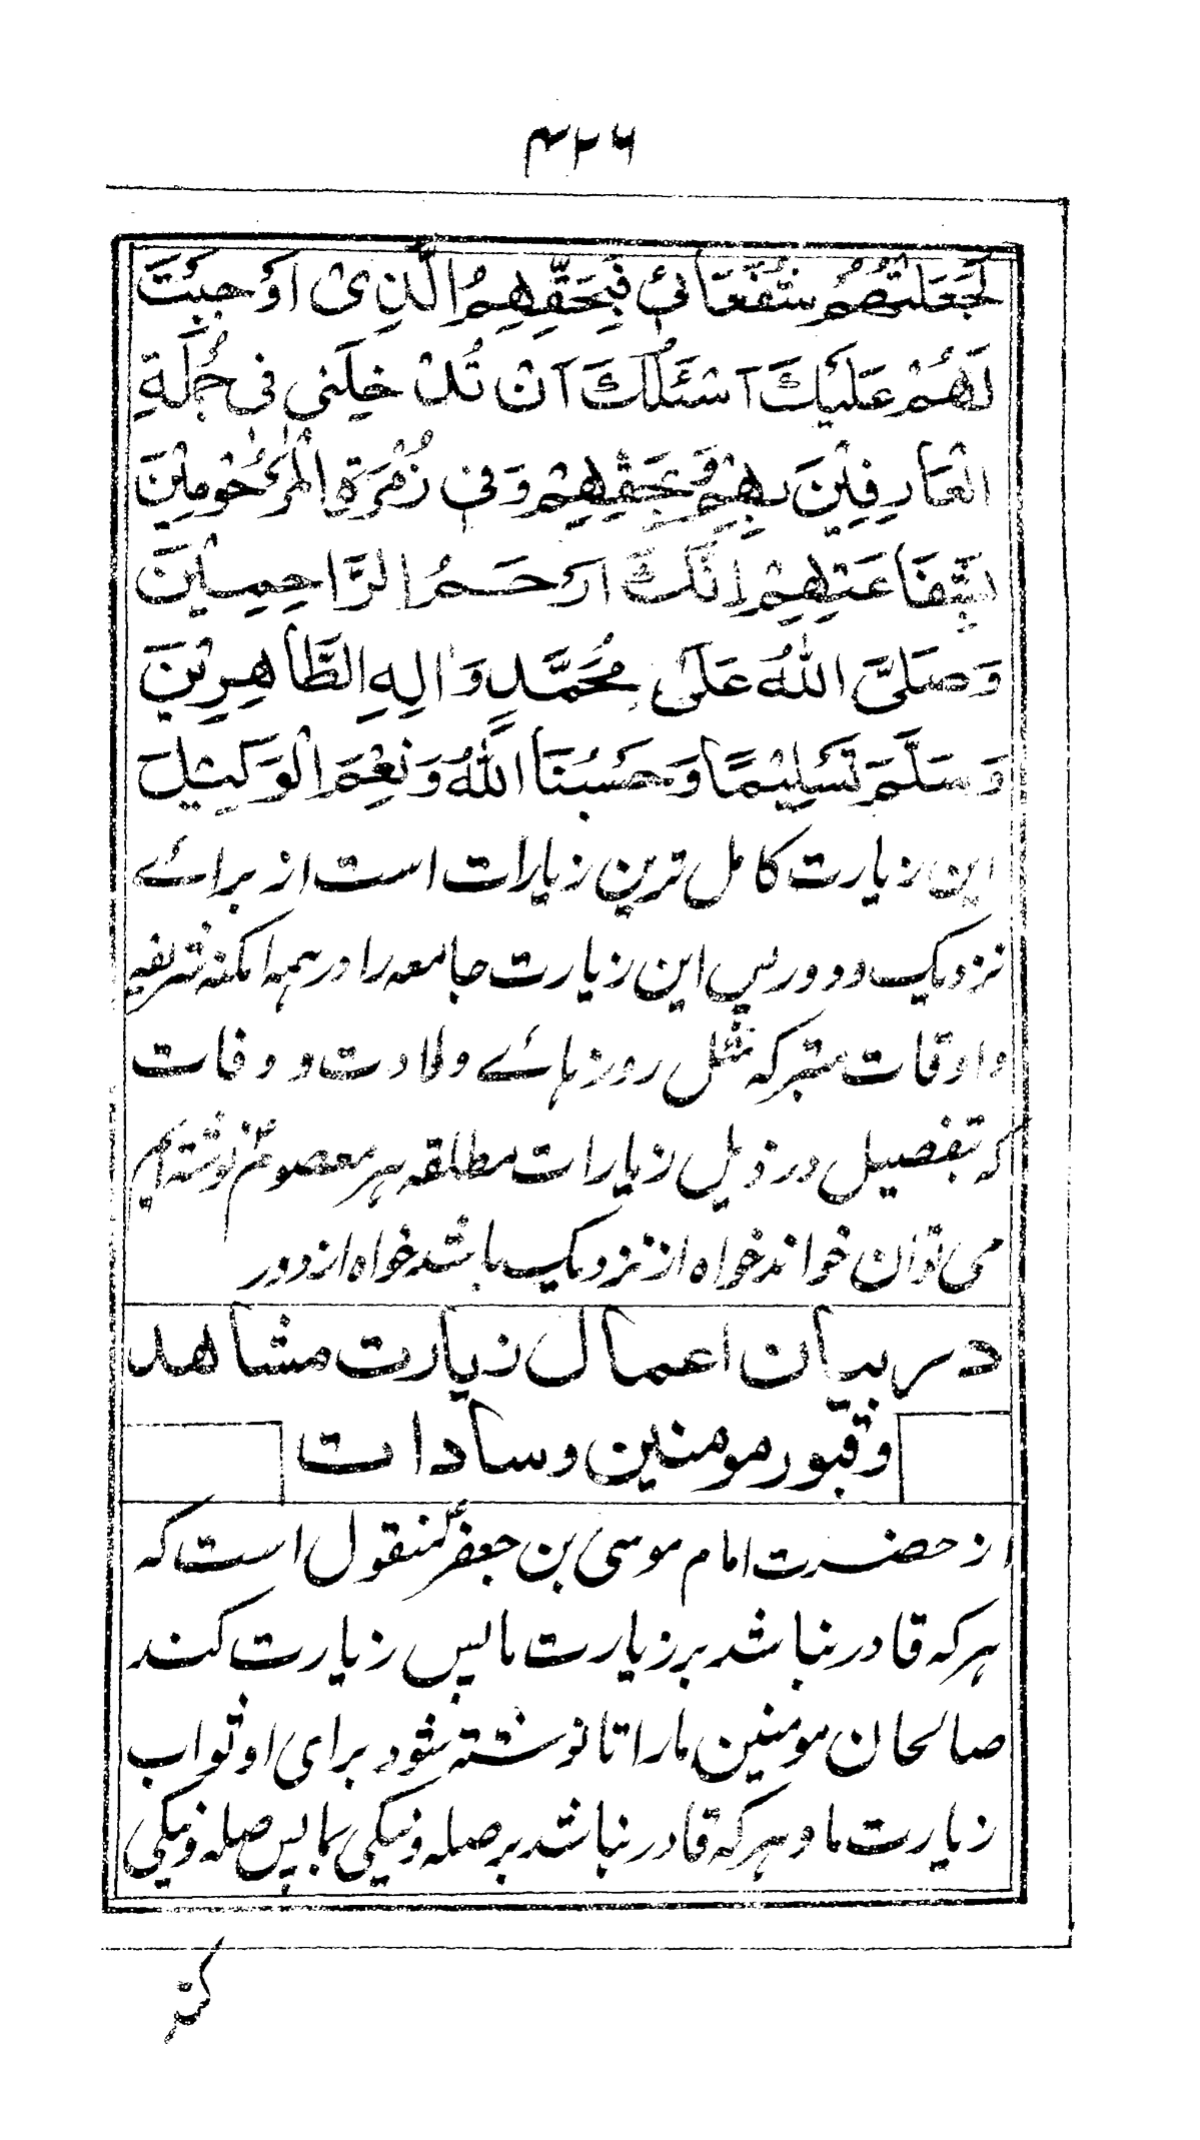 ۴۲۶
لَجَعَلْتُهُمْ شُفَعَائِیْ فَبِحَقِّهِمُ الَّذِیْ اَوْجَبْتَ
لَهُمْ عَلَیْكَ اَسْئَلُكَ اَنْ تُدْخِلَنِی فِی جُمْلَةِ
الْعَارِفِیْنَ بِهِمْ وَبِحَقِّهِمْ وَفِی زُمْرَةِ الْمَرْحُوْمِیْنَ
بِشَفَاعَتِهِمْ اِنَّكَ اَرْحَمُ الرَّاحِمِیْنَ
وَصَلَّی اللّٰهُ عَلٰی مُحَمَّدٍ وَاٰلِهِ الطَّاهِرِیْنَ
وَسَلَّمَ تَسْلِیْمًا وَحَسْبُنَا اللّٰهُ وَنِعْمَ الْوَكِیْلُ
این زیارت کامل ترین زیارات است از برائے
نزدیک و دور پس این زیارت جامعہ را در ہمہ امکنہ شریفہ
و اوقات متبرکہ مثل روزہائے ولادت و وفات
کہ بتفصیل در ذیل زیارات مطلقہ ہر معصومؑ نوشتہ ایم
می توان خواند خواہ از نزدیک باشد خواہ از دور
در بیان اعمال زیارت مشاهد
و قبور مومنین و سادات
از حضرت امام موسی بن جعفرؑ منقول است کہ
ہر کہ قادر نباشد بر زیارت ما پس زیارت کند
صالحان مومنین ما را تا نوشتہ شود برای او ثواب
زیارت ما و ہر کہ قادر نباشد بر صلہ و نیکی بما پس صلہ و نیکی
کند